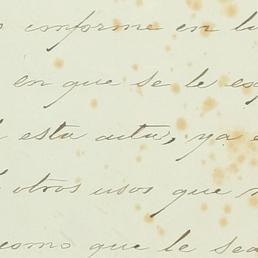 conforme en lu
en que se le es
esta autur, ya e
otros usos que n
como que le sea